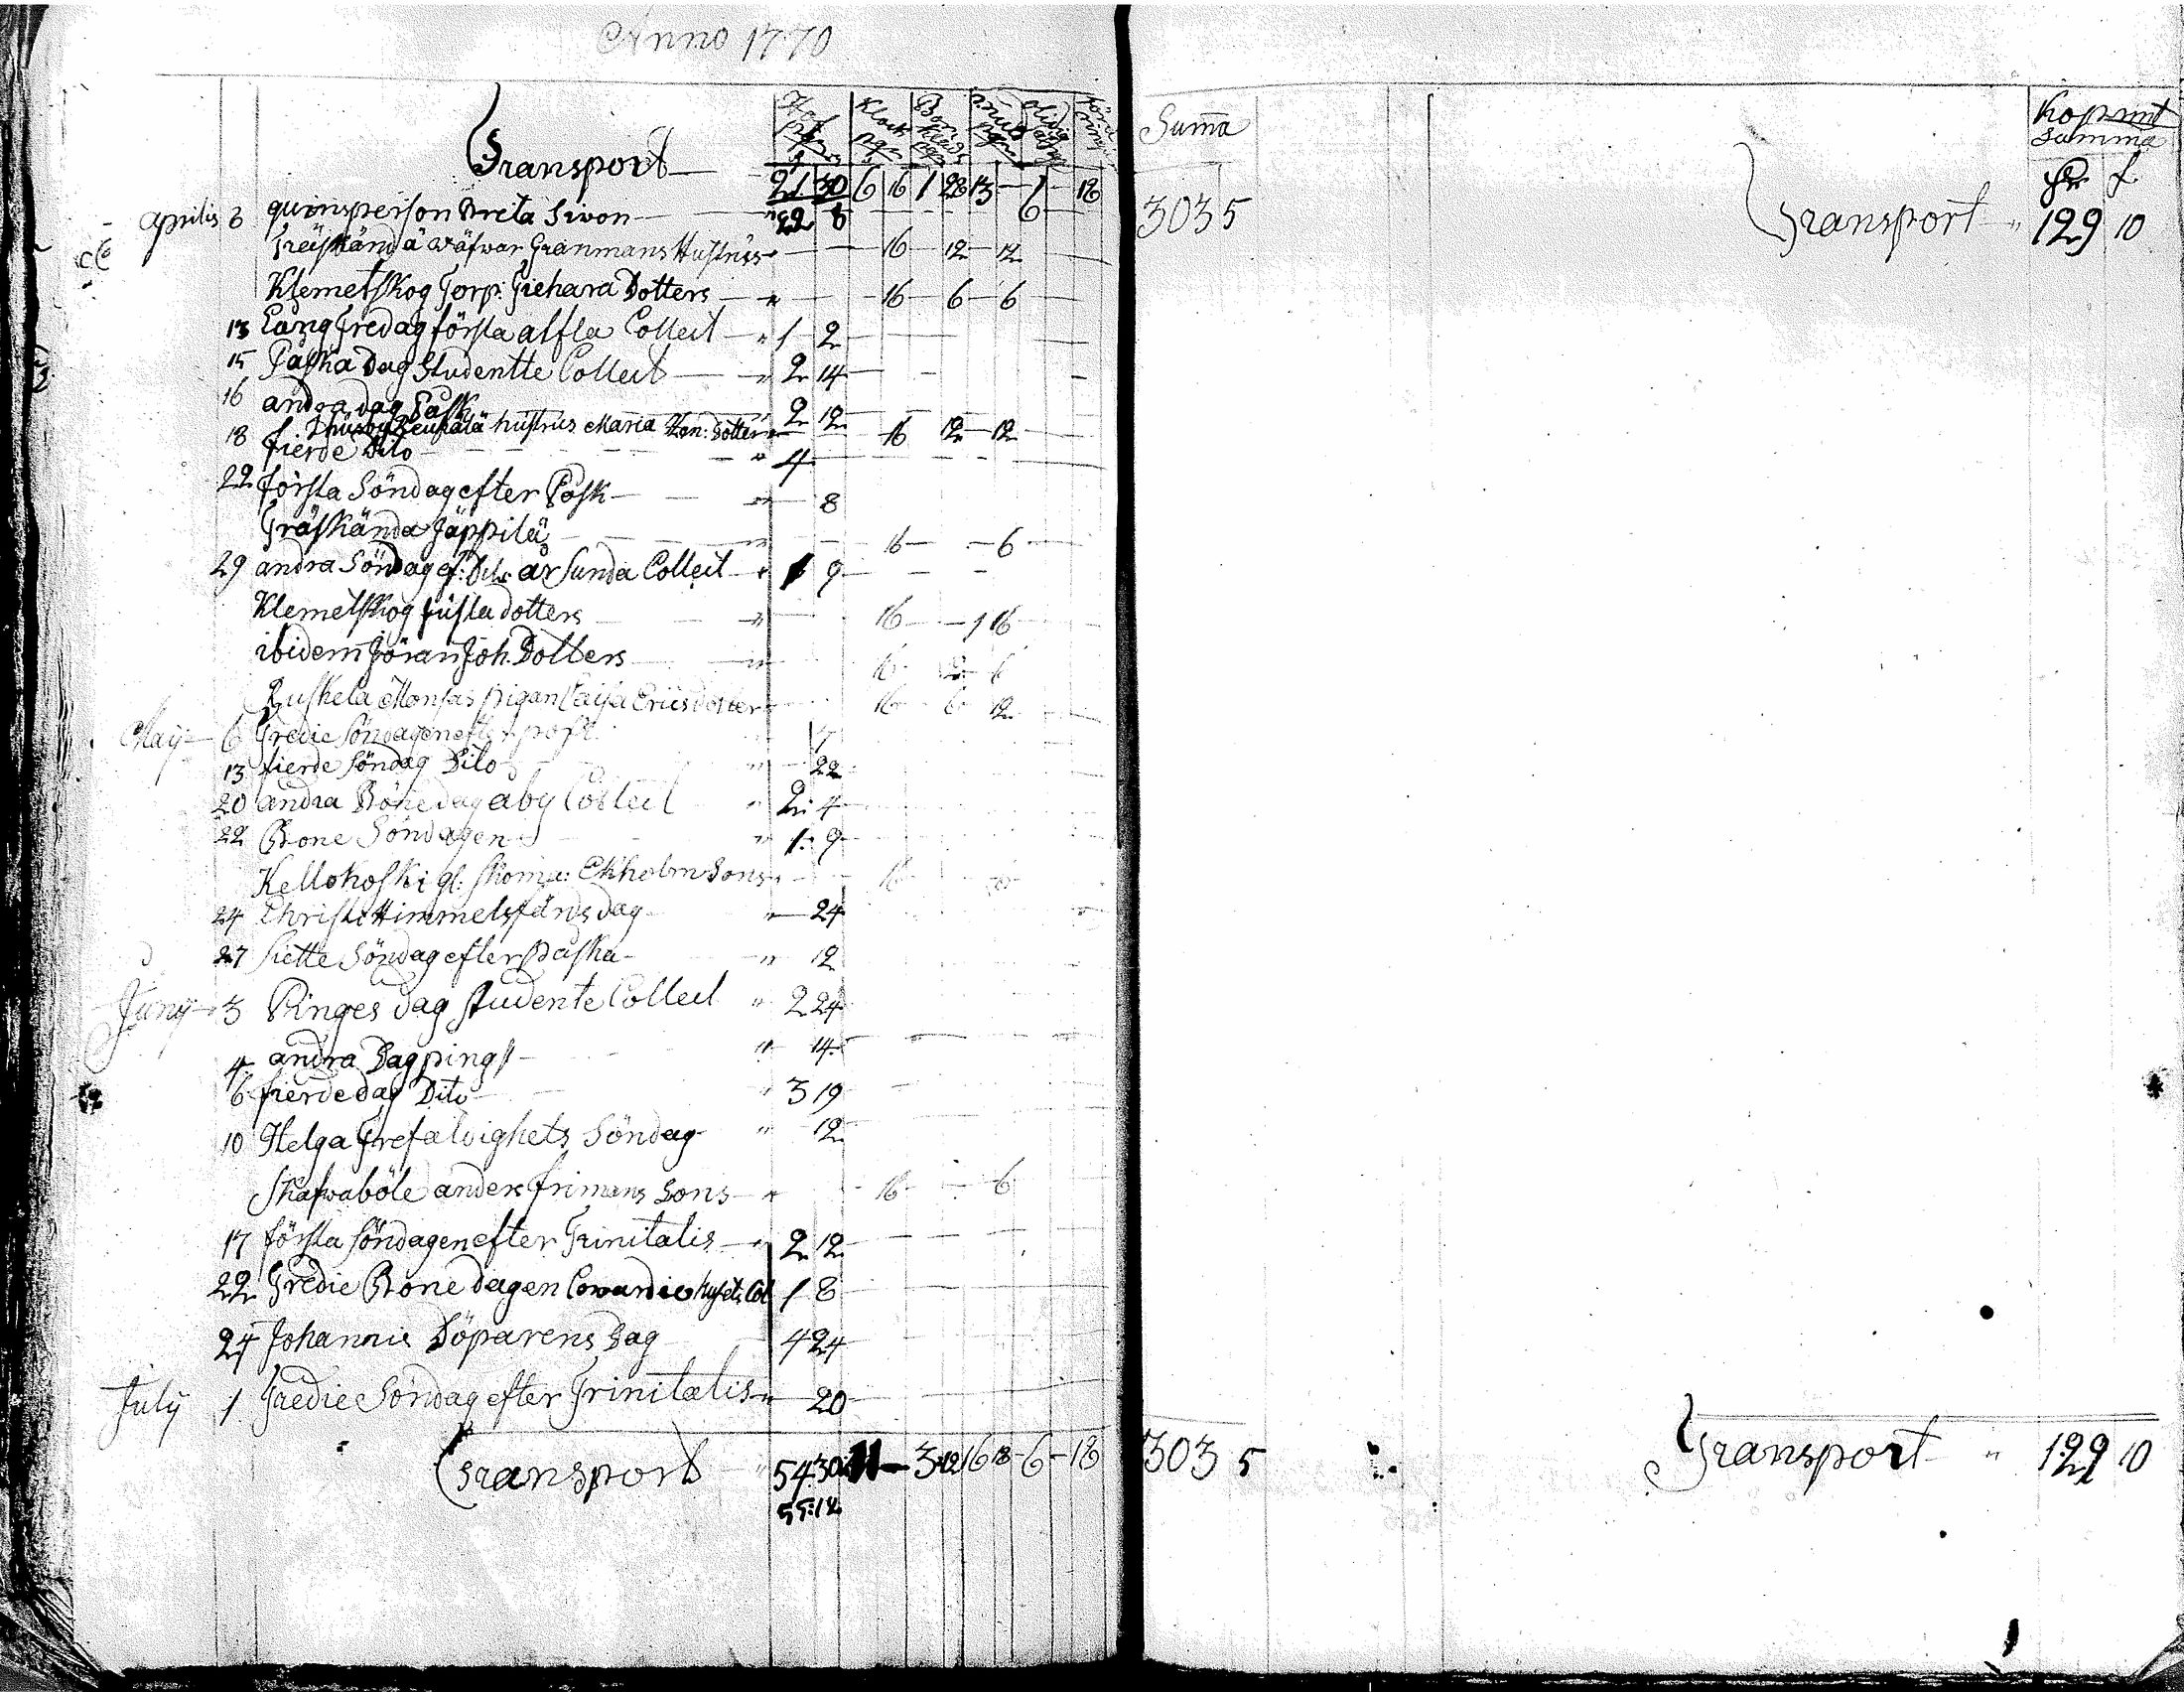 Anno 1770
Klock
Transport — 21 30 6 16 1 22 13 — 6 — 18
Aprilis 8 quinsperson Breta Sivon — " 22 8 — — — 6
Gräskändä wäfwar Granmans Hustrus " — — 16 — 12 — 12 —
Klemetskog Torp: Giehara Dotters — " — — 16 — 6 — 6 —
13 Långfredag första alfla Collect — " 1 — 2
15 Påska Dag Studentte Collect — " 2 14
16 andra dag Påsk 2 12
hustrus Maria Dotter 16 12 — 12
18 fierde Dito — " 4
22 första Söndag efter Påsk — " — 8
Gräskända Jäppilä — " — 16 — — 6 —
29 andra Söndag ef: Dito år Sunda Collect " 1 9
Klemetskog dotters — " — 16 — — 1 16
ibidem Jöran Joh. Dotters — " 16
Ruskela Monsas pigan Caisa Ericsdotter — 16 — 6 — 12
May — 6 Tredie Söndagen efter 7
13 fierde Söndag Dito " — 22
20 andra Bönedag åby Collect " 2: 4
22 Bone Söndagen — " 1: 9
Kellokoski gl: Ekholm Sons — 16
24 Christi Himmelsfärds dag — " — 24
27 Siette Söndag efter Påska — " 12
Junij — 3 Pinges dag studente Collect " 2 24
4 andra Dag pingst — " 14
6 fierde dag Dito — " 3 19
10 Helga Trefaldighets Söndag — " 12
Skafwaböle anders frimans Sons — " 16 — 6
17 första Söndagen efter Trinitatis — " 2 12
22 Tredie Bone dagen Col 1 8
24 Johannis Döparens Dag 4 24
July 1 Tredie Söndag efter Trinitatis — " — 20
Transport — " 54 30 11 — 3 12 16 18 — 6 — 18
55:12
Suma
3035
3035
Summa
Transport " 129 10
Transport " 129 10